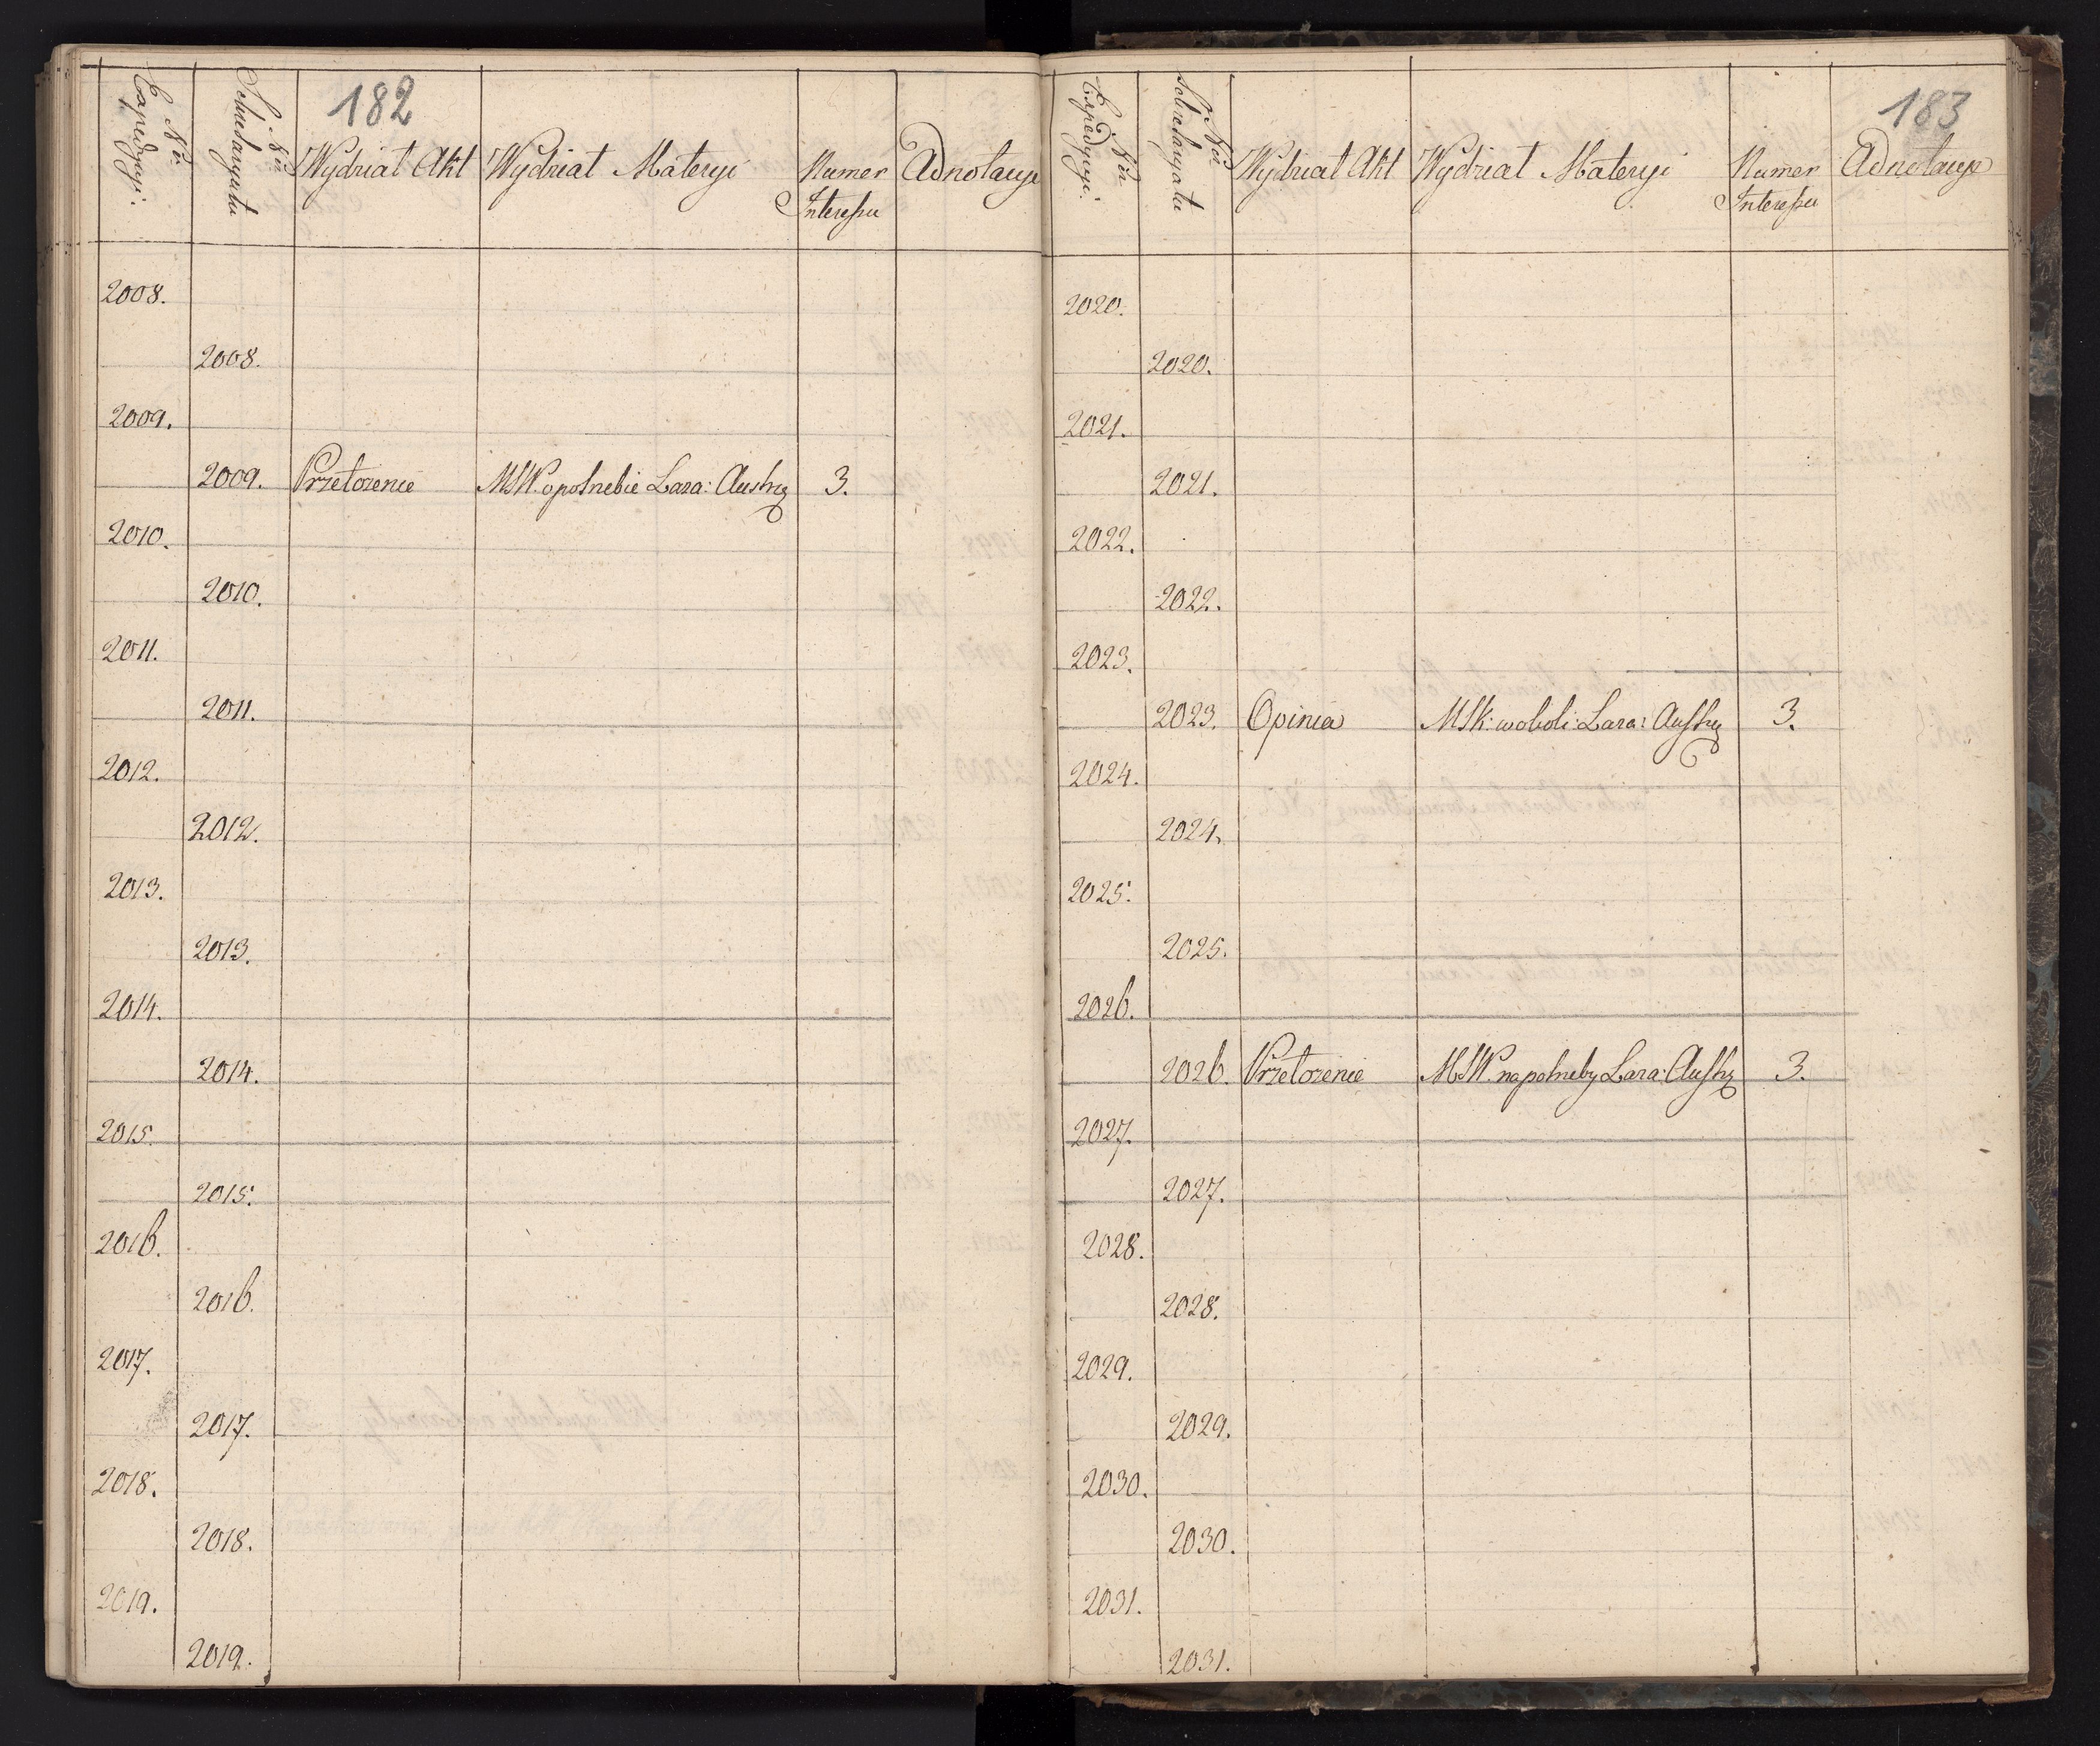 182
Nr Expedycyi.
Nr Sekretaryatu
Wydział Akt
Wydział Materyi
Numer Interessu
Adnotacye
2008.
2008.
2009.
2009. Przełożenie MSW. o potrzebie Laza: Austry 3.
2010.
2010.
2011.
2011.
2012.
2012.
2013.
2013.
2014.
2014.
2015.
2015.
2016.
2016.
2017.
2017.
2018.
2018.
2019.
2019.
183
Nr Expedycyi.
Nr Sekretaryatu
Wydział Akt
Wydział Materyi
Numer Interessu
Adnotacye
2020.
2020.
2021.
2021.
2022.
2022.
2023.
2023. Opinia Laza: Austry 3.
2024.
2024.
2025.
2025.
2026.
2026. Przełożenie MSW. na potrzeby Laza: Austry 3.
2027.
2027.
2028.
2028.
2029.
2029.
2030.
2030.
2031.
2031.